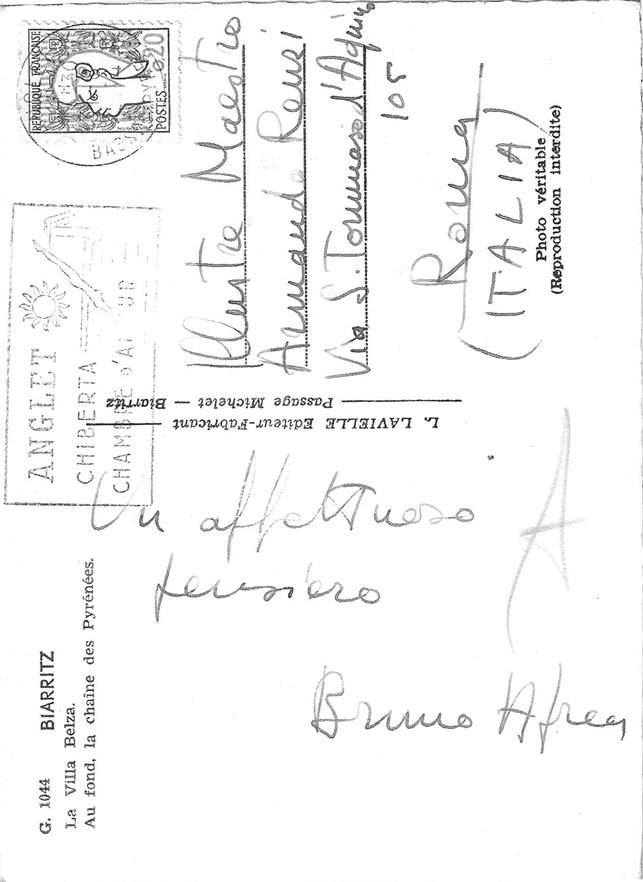 G. 1044 BIARRITZ
La Villa Belza.
Au fond, la chaîne des Pyrénées.
Un affettuoso
pensiero
Bruno Aprea
L. LAVIELLE Editeur-Fabricant
Passage Michelet — Biarritz
ANGLET
CHIBERTA
CHAMBRE D'AMOUR
REPUBLIQUE FRANÇAISE
0,20
POSTES
Illustre Maestro
Armando Renzi
Via S. Tommaso d'Aquino
105
Roma
(ITALIA)
Photo véritable
(Reproduction interdite)